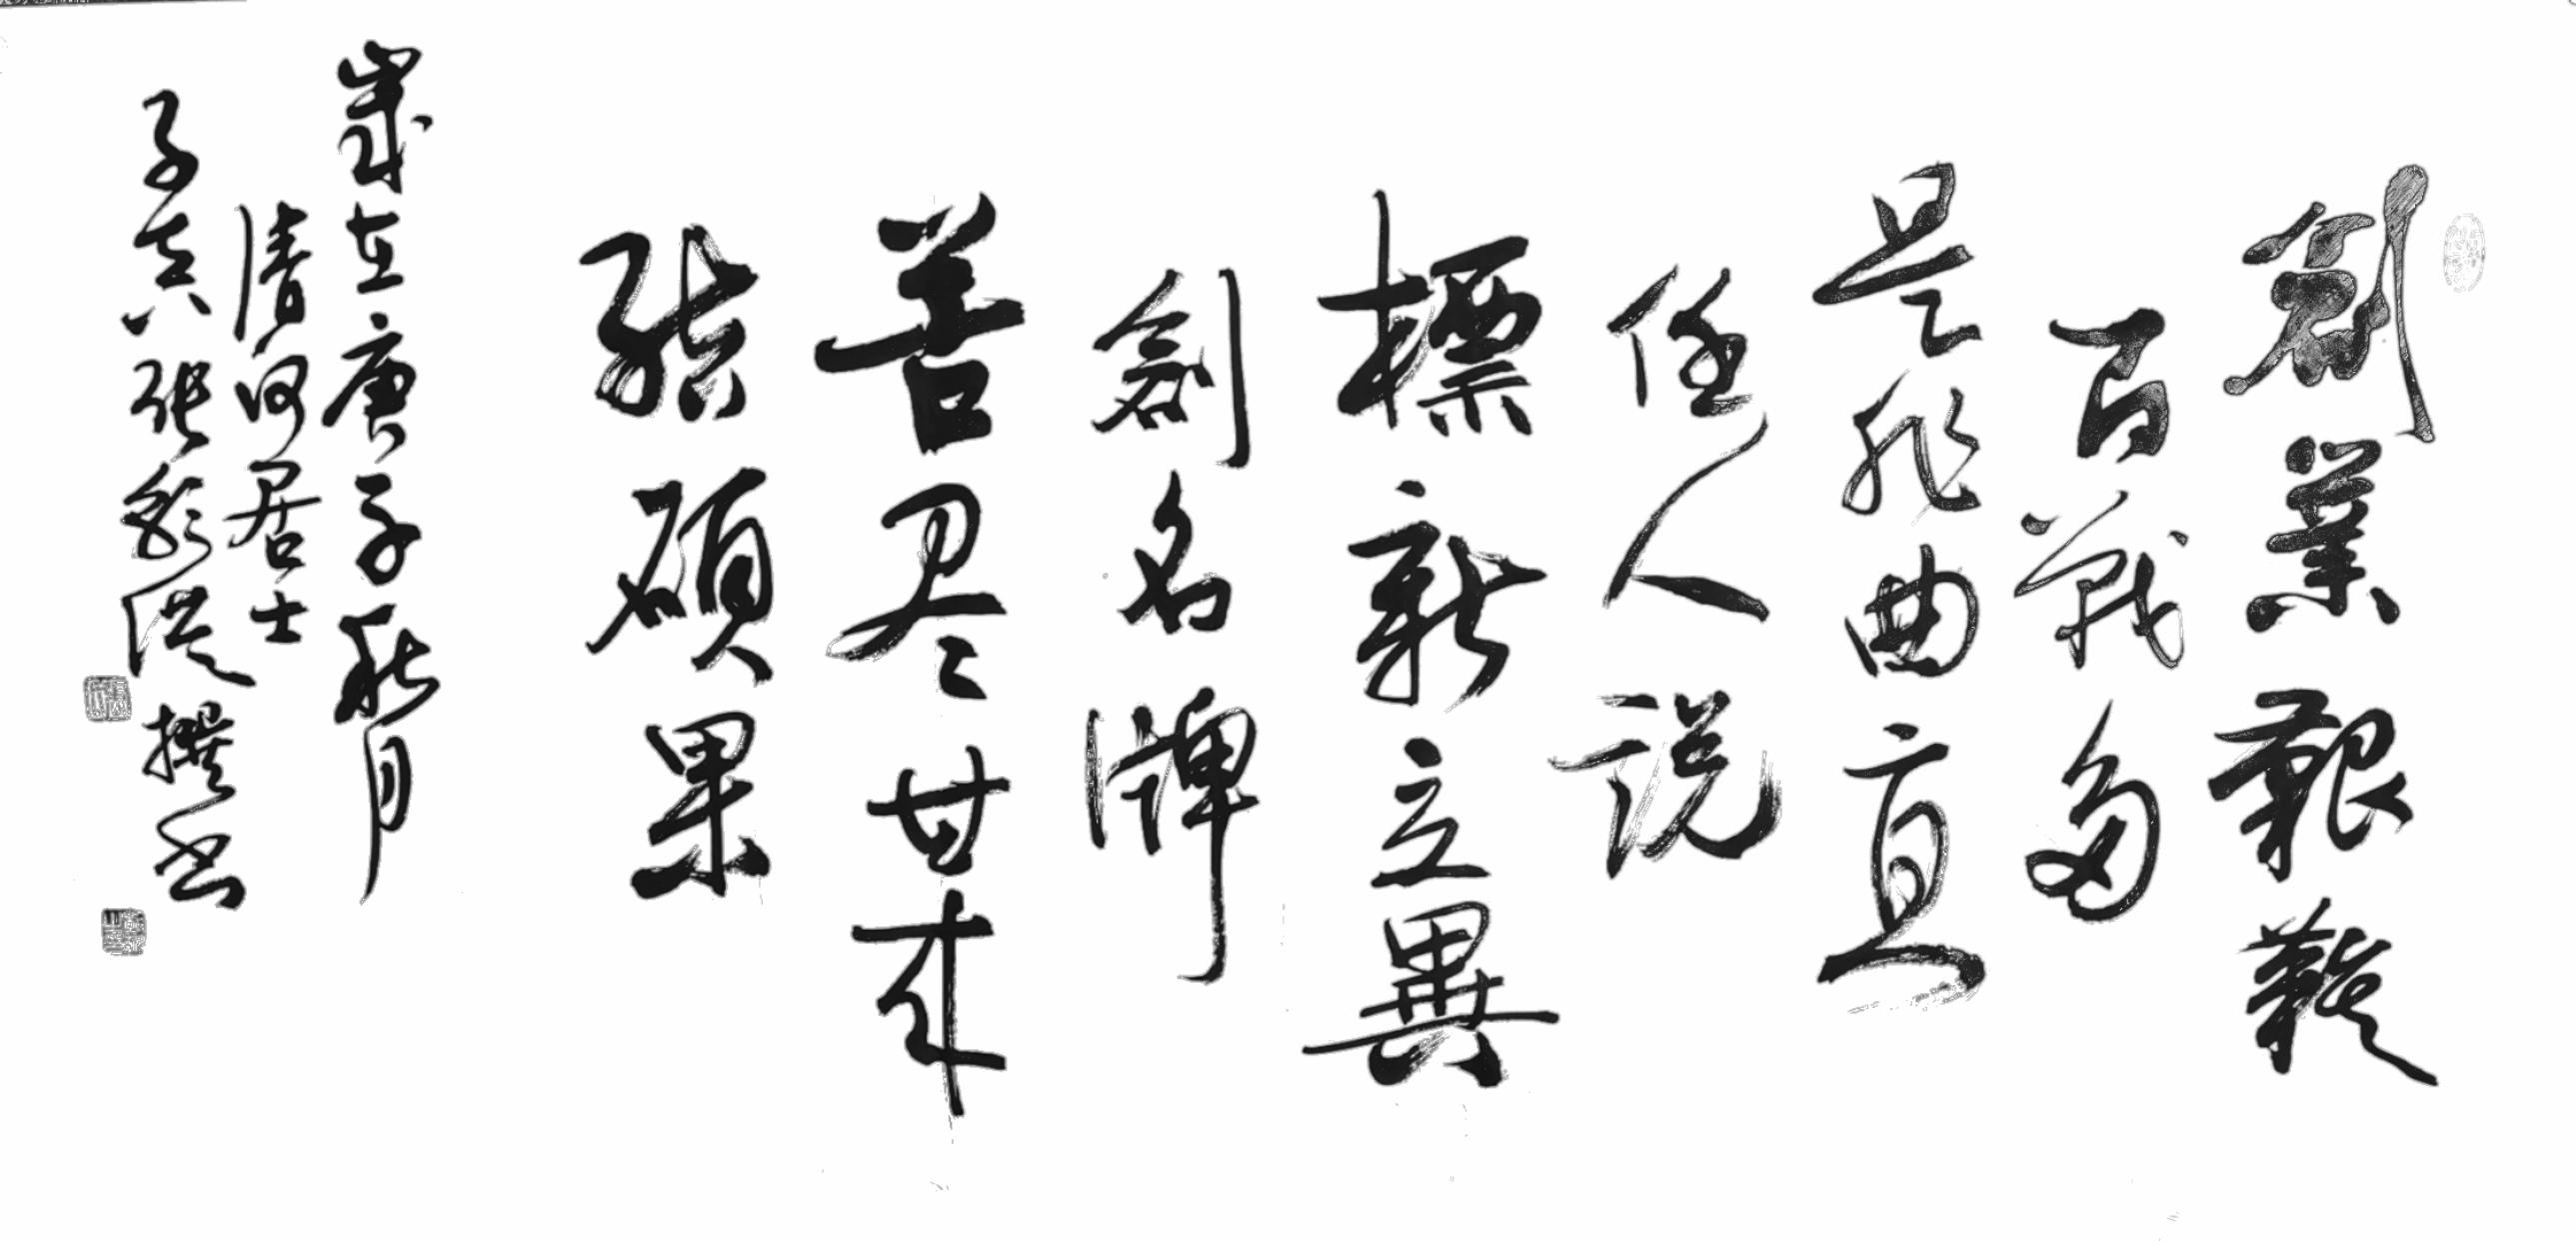 創業艱難
百戰多
是非曲直
任人説
標新立異
創名牌
苦尽甘来
結碩果
歲在庚子秋月
清河居士
子真张彩撰书